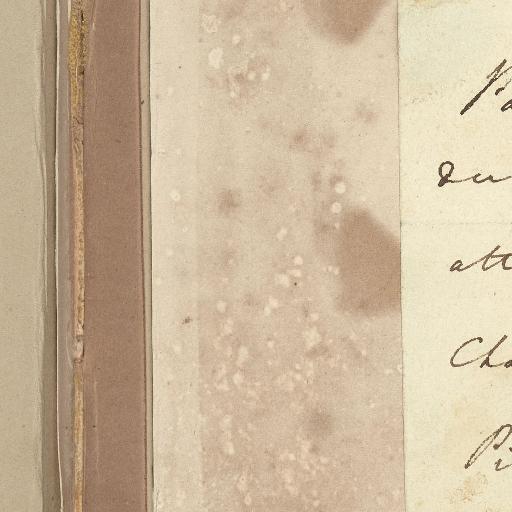 Pa
du
att
Cha
Pi